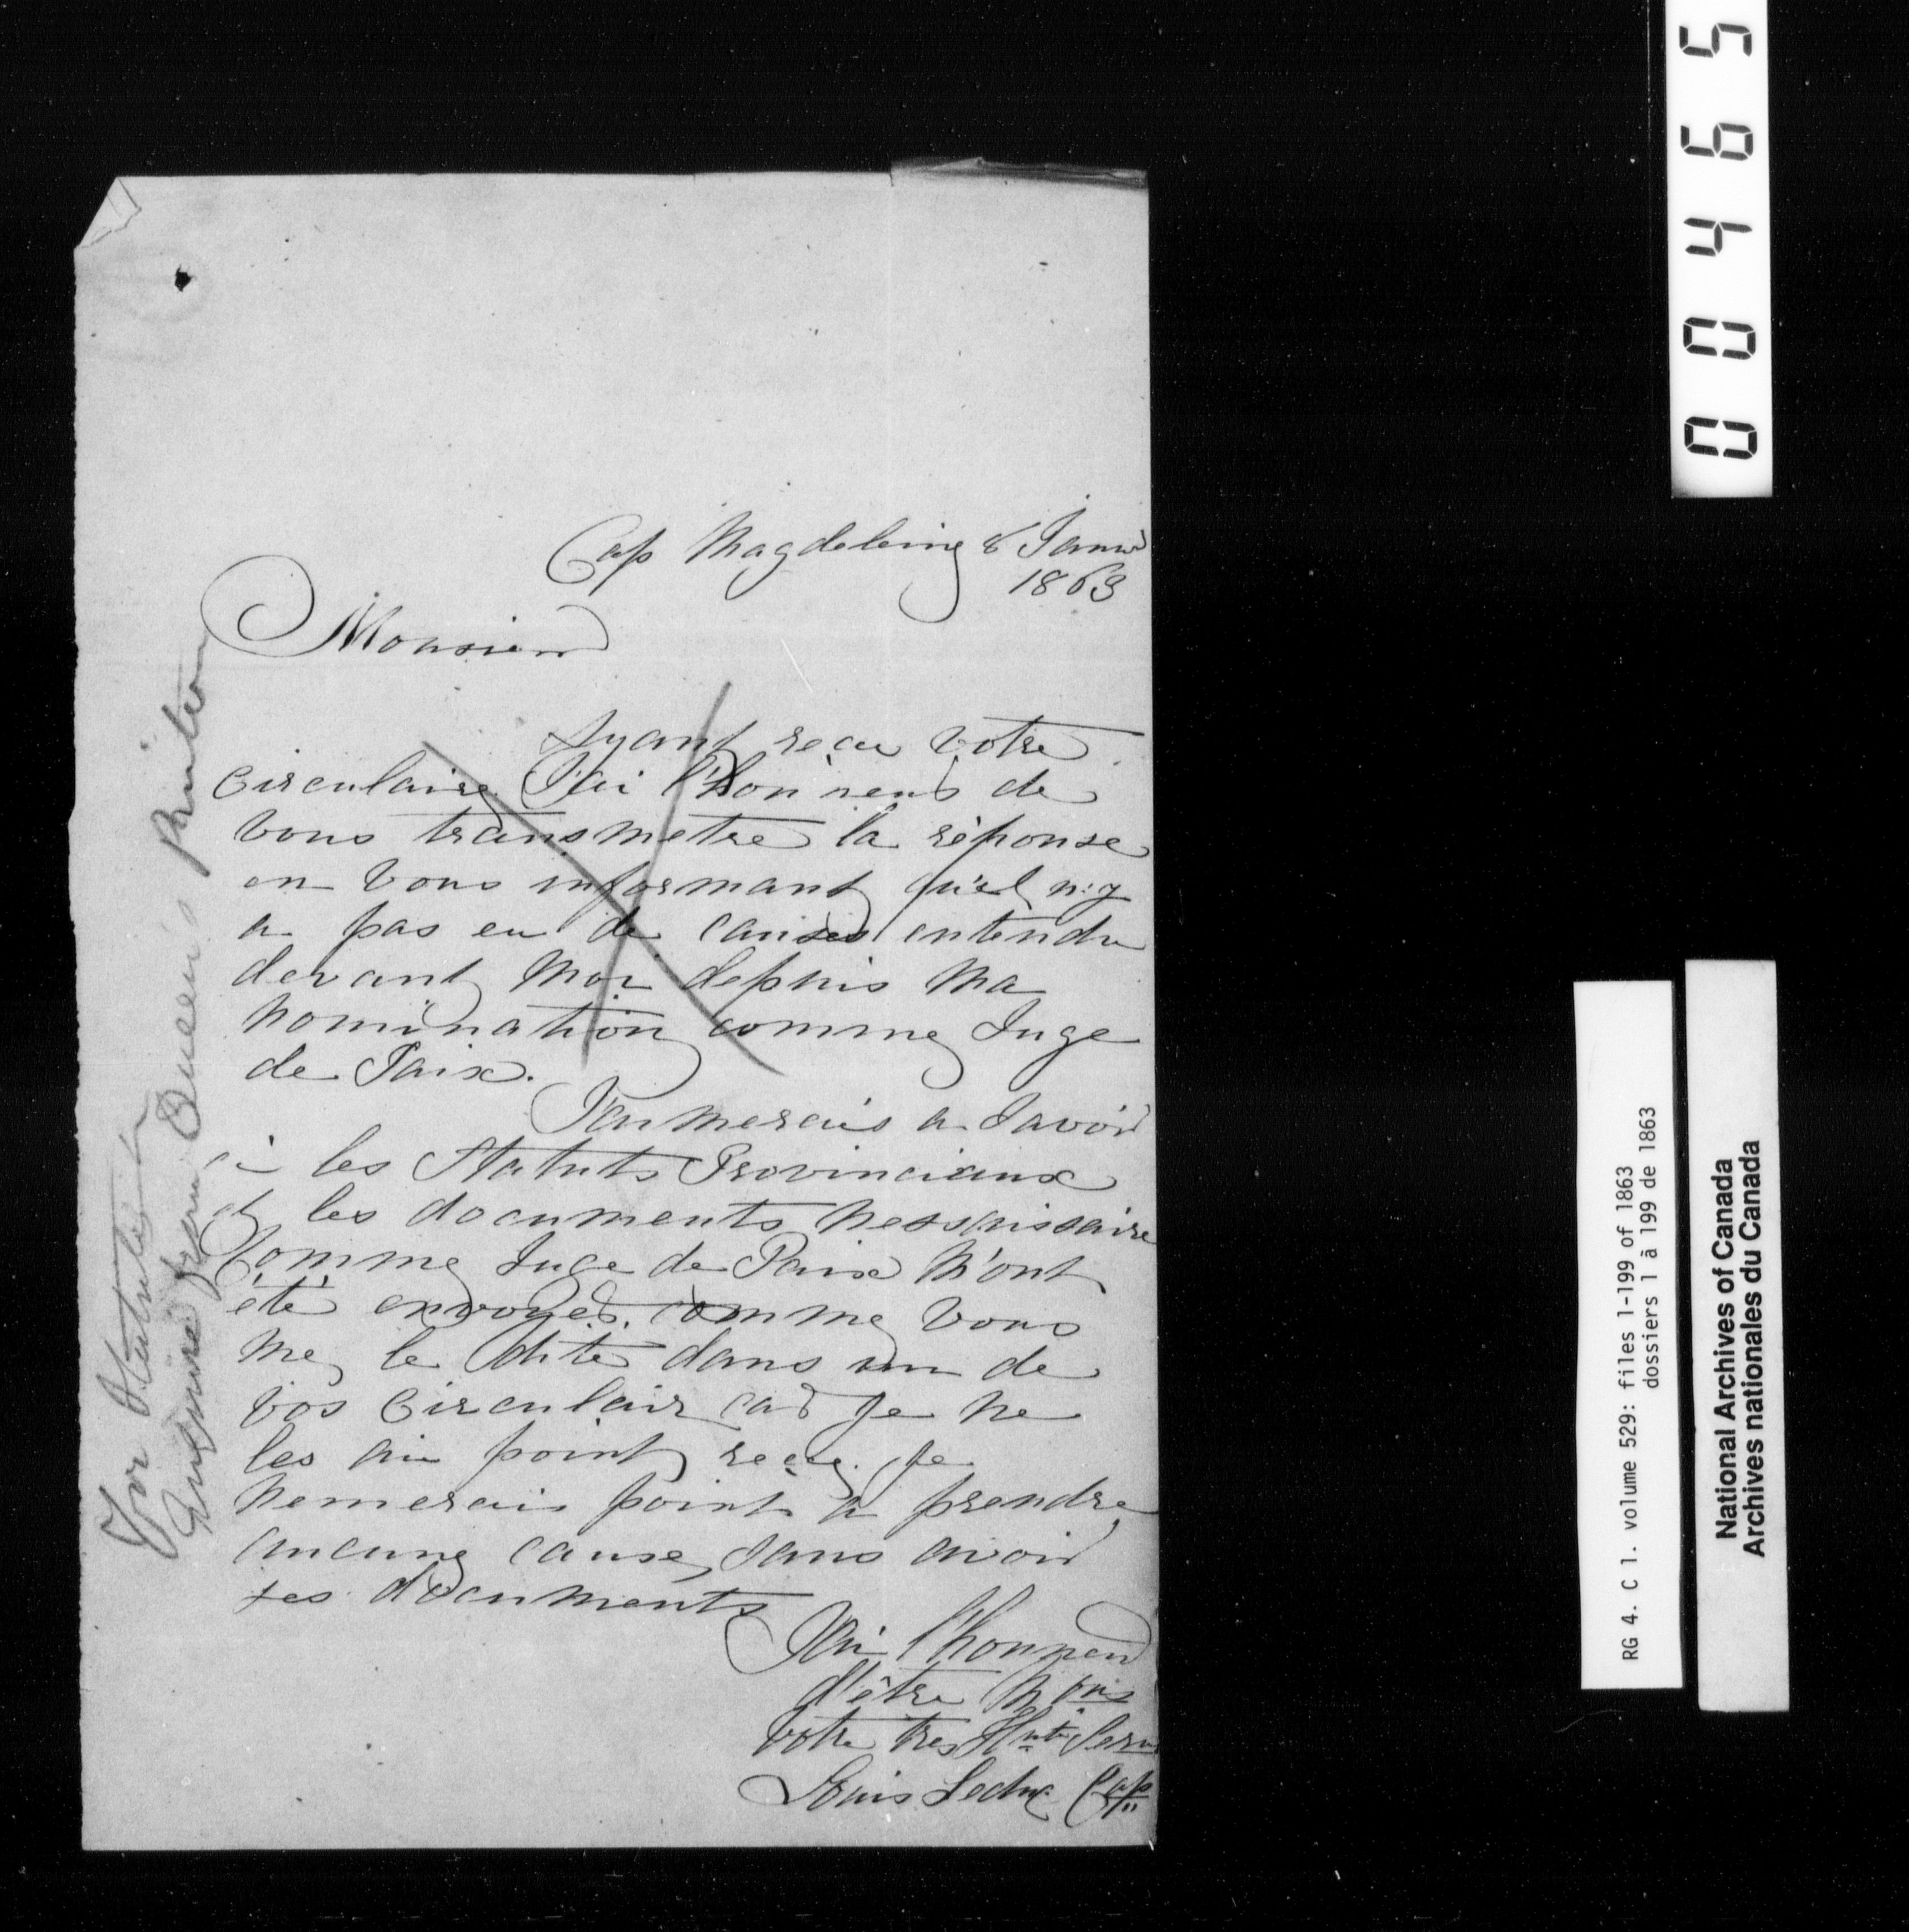 Cap Magdeleine 8 Janvr
1863
Monsieur
Ayant recu votre
circulaire J'ai l'honneur de
vous transmetre la réponse
en vous informant qu'il n'y
a pas eu de causes entendu
devant moi depuis ma
nomination comme Juge
de Paix.
J'aimerais a savoir
si les Statuts Provinciaux
et les documents nessaissaire
comme Juge de Paix m'ont
été envoyés comme vous
me le dite dans un de
vos circulair car je ne
les ai point recu. Je
nemerais point a prendre
aucune cause, sans avoir
ses documents
J'ai l'honneur
d'être
votre tres Hble Serv
Louis Leduc Cap
For Statutes
Enquire from Queen's Printer
00465
RG 4. C 1. volume 529: files 1-199 of 1863
dossiers 1 à 199 de 1863
National Archives of Canada
Archives nationales du Canada